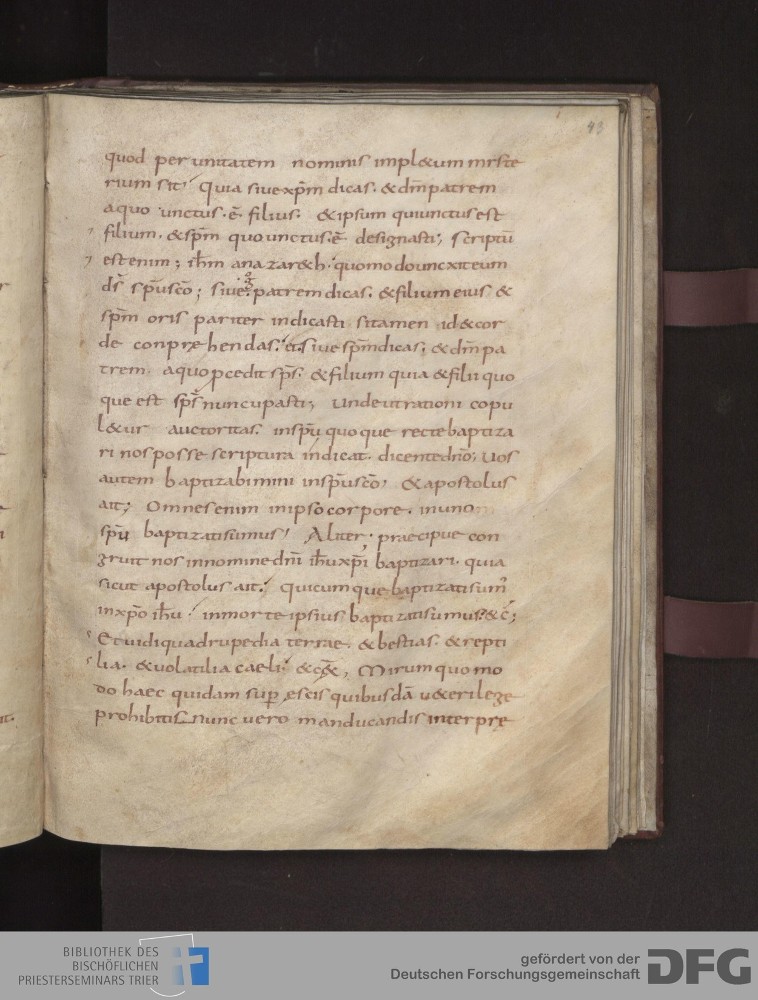 43
quod per unitatem nominis impl&um miste
rium sit; quia sive xp̄m dicas. & dm̄ patrem
a quo unctus. ē. filius. & ipsum qui unctus est
filium. & sp̄m quo unctus. ē. designasti; scriptū
est enim; ih̄m a nazar&h. quomodo uncxit eum
ds̄ sp̄u sc̄o; sive patrem dicas. & filium eius &
sp̄m oris pariter indicasti. si tamen id & cor
de conprehendas. et sive sp̄m dicas. & dm̄ pa
trem. a quo procedit sp̄s. & filium quia & filii quo
que est sp̄s nuncupasti; Unde ut rationi copu
l&ur auctoritas. in sp̄u quoque recte baptiza
ri nos posse scriptura indicat. dicente dn̄o; Uos
autem baptizabimini in sp̄u sc̄o; & apostolus
ait; Omnes enim in ipso corpore. in uno
sp̄u baptizati sumus; Aliter. praecipue con
gruit nos in nomine dn̄i ih̄u xp̄i baptizari. quia
sicut apostolus ait. quicumque baptizati sum'
in xp̄o ih̄u. in morte ipsius baptizati sumus. & c̄;
Et vidi quadrupedia terrae. & bestias. & repti
lia. & volatilia caeli. & c&. Mirum quomo
do haec quidam sup escis quibusdā v&eri lege
prohibitis. nunc vero manducandis interprę
BIBLIOTHEK DES
BISCHÖFLICHEN
PRIESTERSEMINARS TRIER
gefördert von der
Deutschen Forschungsgemeinschaft
DFG